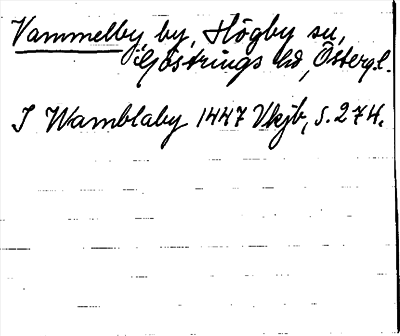 Vammelby by, Högby sn,
Göstrings hd, Östergl.
I Wamblaby 1447 Vkjb, s. 274.